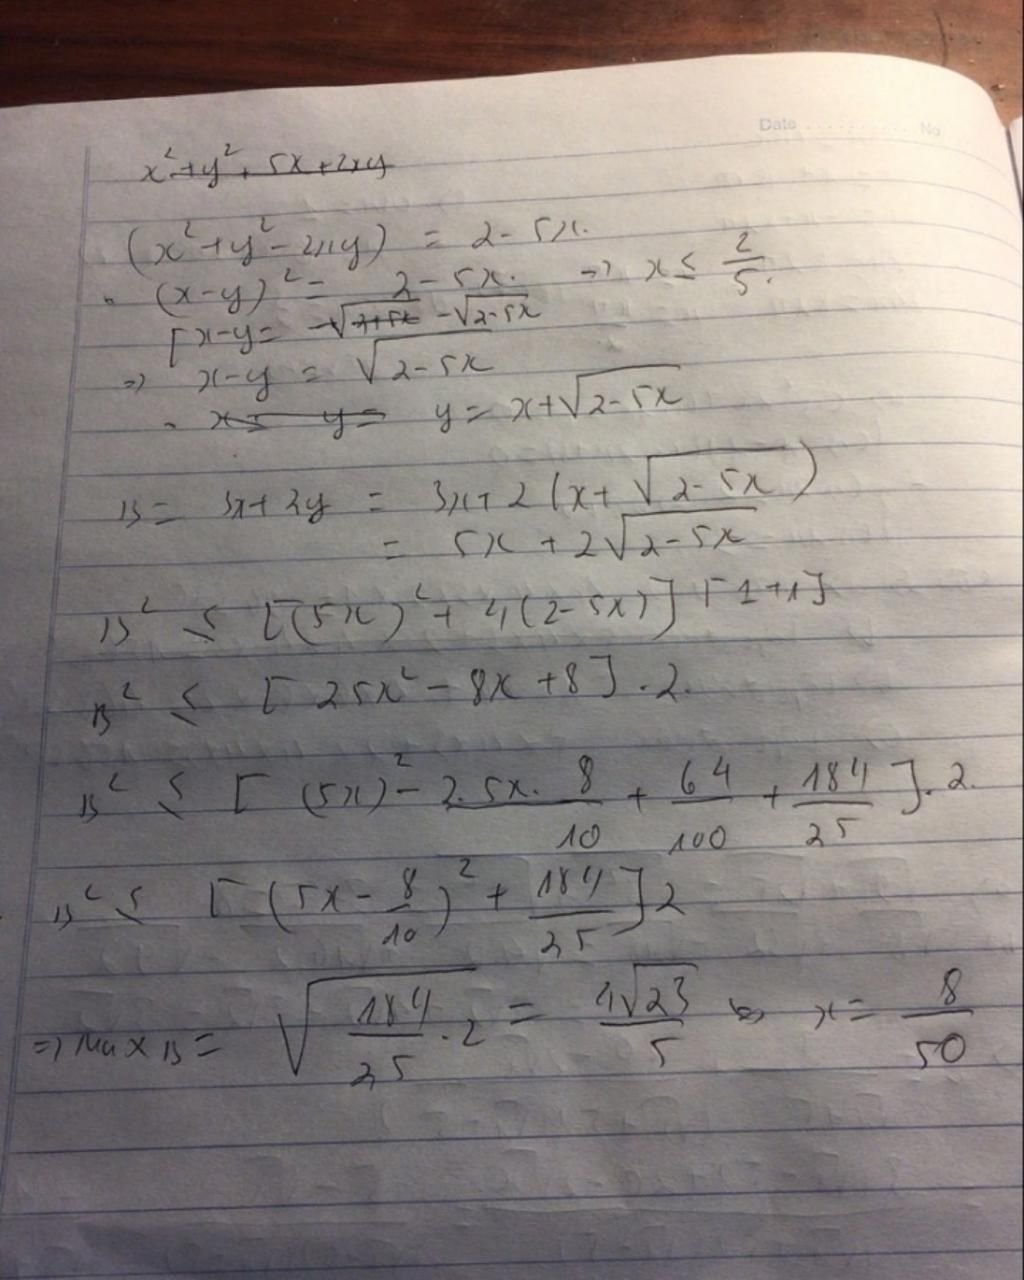 Date .......... No
x² + y² + 5x + 2xy
(x² + y² - 2xy) = 2 - 5x.
(x - y)² = 2 - 5x. => x ≤ 2/5.
[x - y = -√2+5x -√2-5x
=> x - y = √2-5x
- x ≤ y = y = x + √2-5x
B = 3x + 2y = 3x + 2(x + √2-5x)
= 5x + 2√2-5x
B² ≤ [(5x)² + 4(2-5x)] [1+1]
B² ≤ [25x² - 8x + 8].2.
B² ≤ [(5x)² - 2.5x. 8/10 + 64/100 + 184/25].2.
B² ≤ [(5x - 8/10)² + 184/25]2
=> Max B = √(184/25 .2) = 4√23/5 <=> x = 8/50